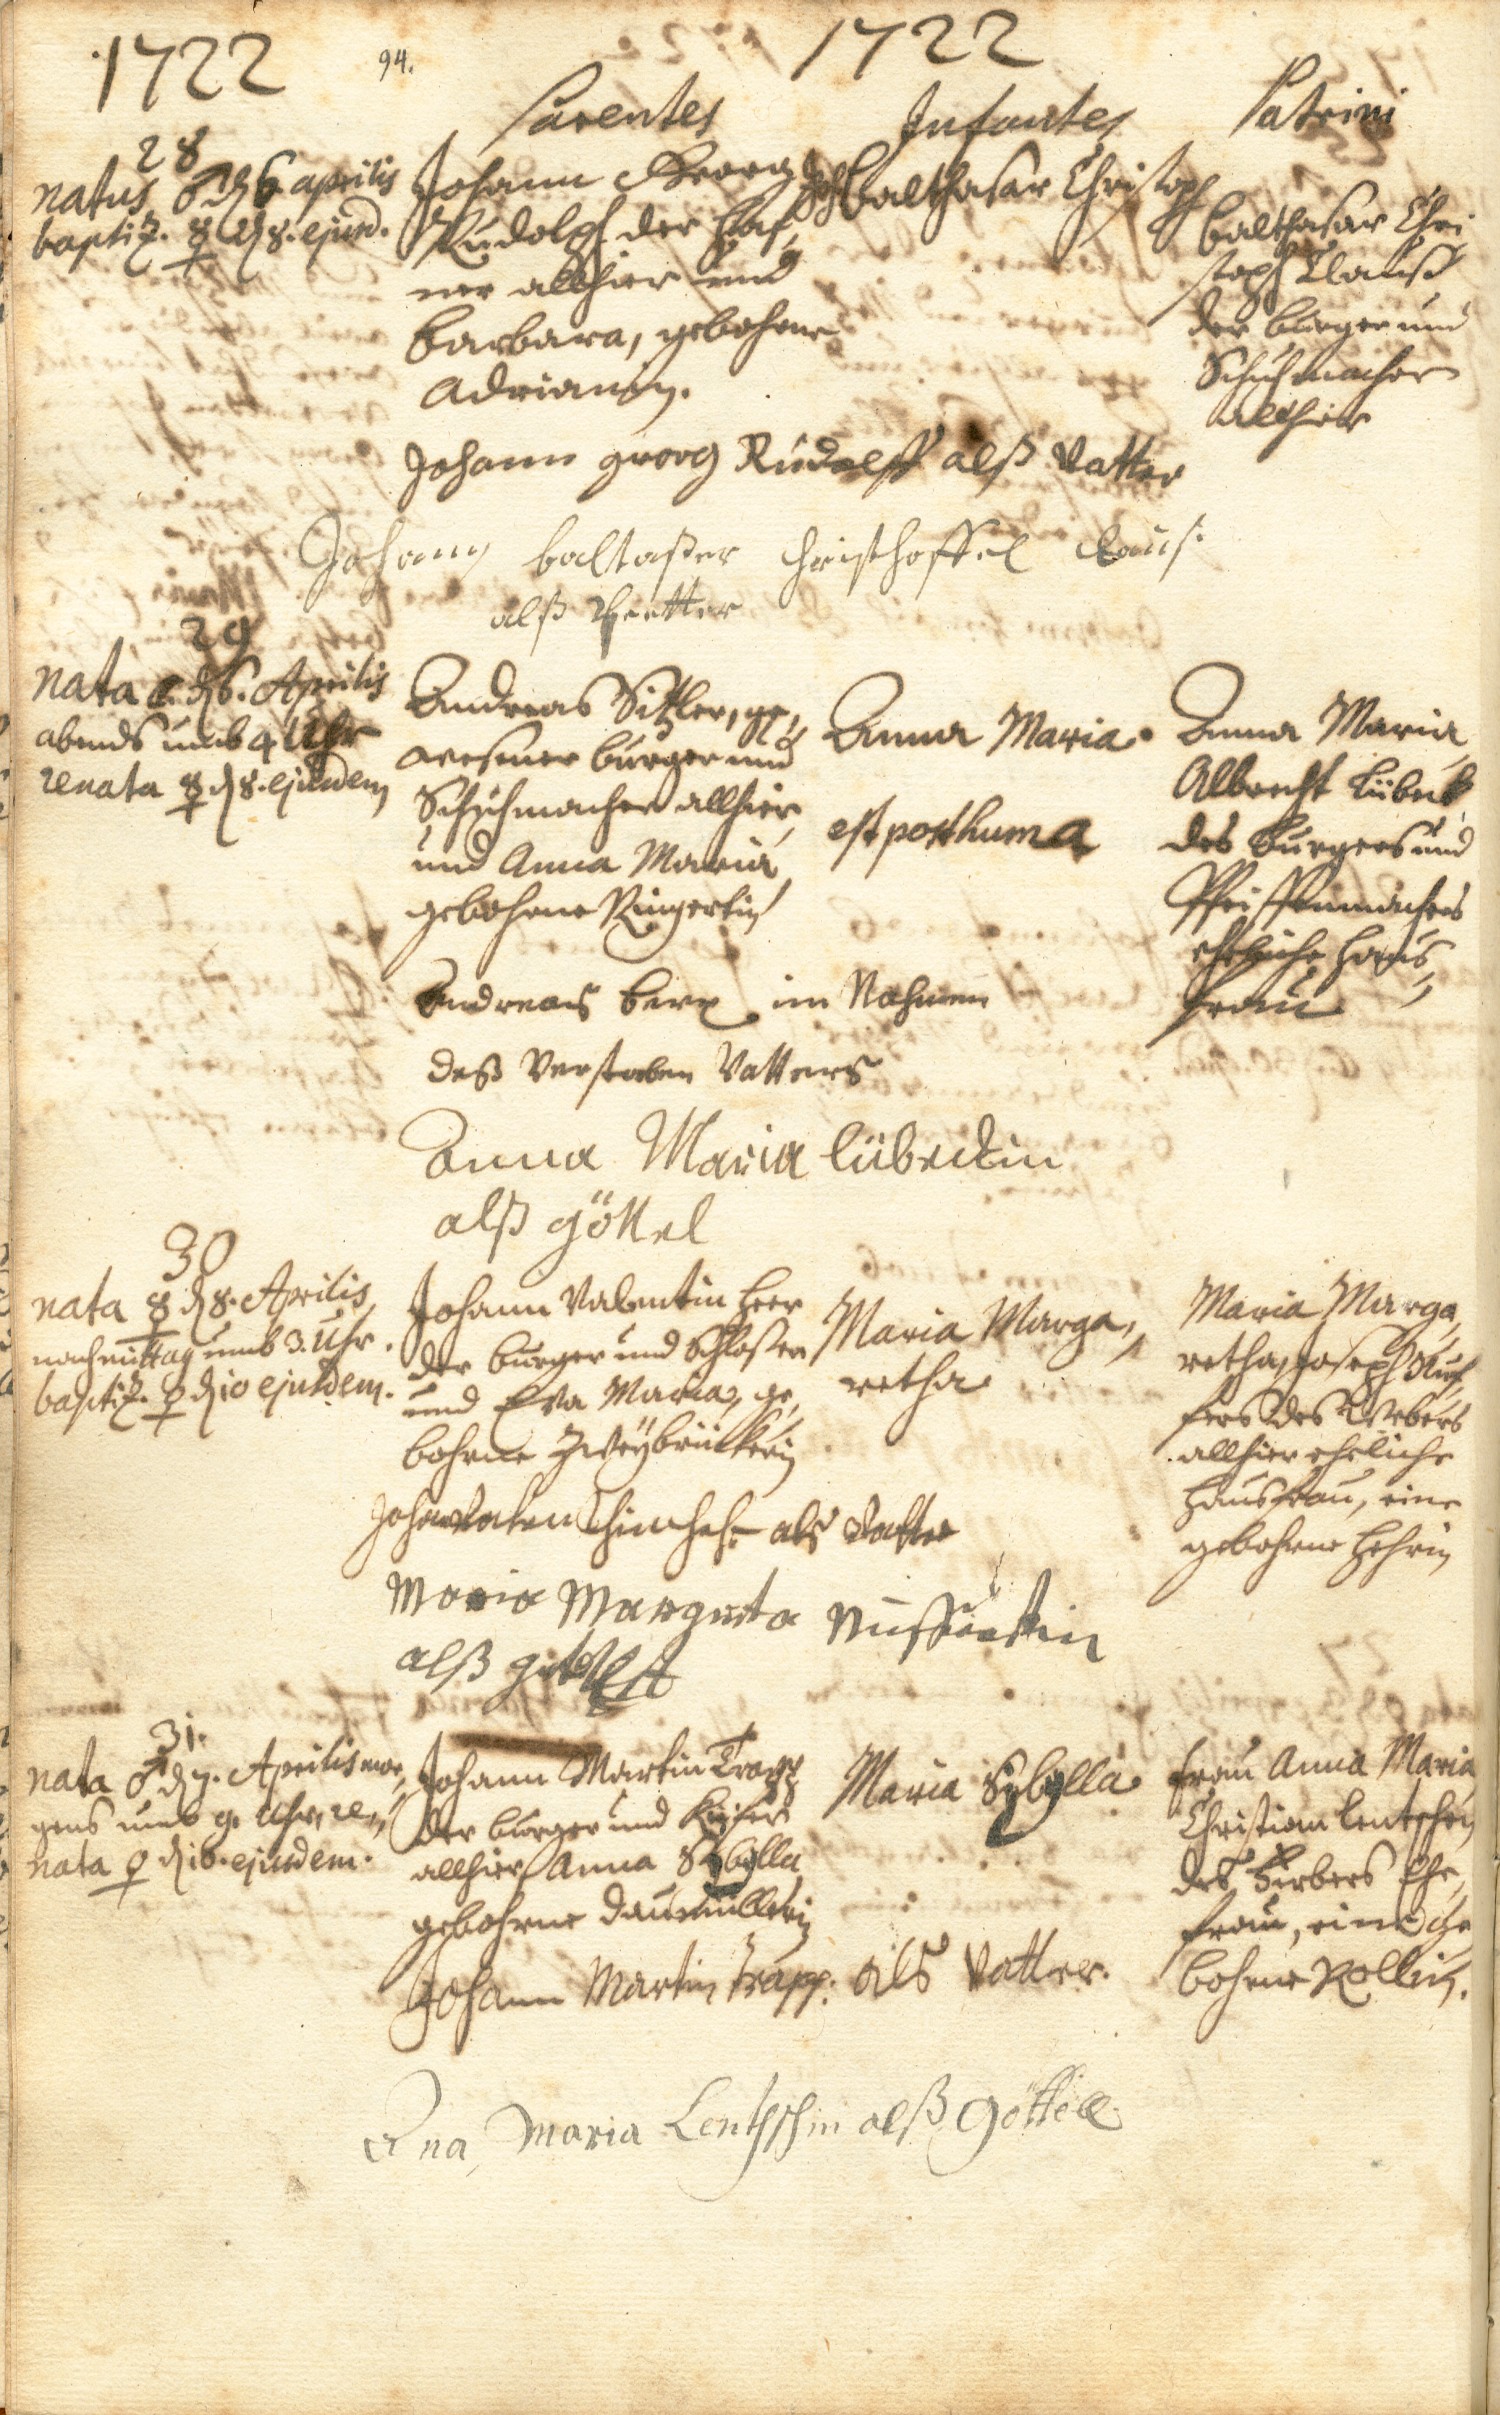 1722
94.
1722
Parentes
Infantes
Patrini
28
natus ♂ d 6 aprilis
baptiz. ☿ d 8. ejusd.
Johann Georg
Rudolph der Haf-
ner allhier und
Barbara, gebohrne
Adrianin.
Joh Balthasar Christoph
Balthasar Chri
stoph Clauß
der burger und
Schuhmacher
allhier
Johann georg Rudolff alß Vatter
Johann baltaßer christhoffel Claus
alß
29
nata d 6. Aprilis
abends umb 4 Uhr
renata ☿ d 8. ejusdem
Andreas Sitzler, ge-
wesener burger und
Schuhmacher allhier
und Anna Maria
gebohrne Ringertin
Anna Maria
est posthuma
Anna Maria
Albrecht Lübeck
des burgers und
Pfeiffenmachers
eheliche Haus-
frau
Andreas berx im Nahmen
deß Verstorben Vatters
Anna Maria lübeckin
alß göttel
30
nata ☿ d 8. Aprilis
nachmittag umb 3. Uhr.
baptiz. ♀ d 10 ejusdem.
Johann Valentin Heer
der burger und Schloßer
und Eva Maria, ge-
bohrne Zweybrückerin
Maria Marga-
retha
Maria Marga-
retha, Joseph
des Webers
allhier eheliche
Hausfrau, eine
gebohrne Hehrin
als Vatter
Maria Margreta
alß
31.
nata ♂ d 7. Aprilis mor-
gens umb 9. Uhr, re-
nata ♀ d 10. ejusdem.
Johann Martin Trapp
der burger und Kiefer
allhier Anna Sybilla
gebohrne Daumüllerin
Maria Sybilla
Frau Anna Maria
Christian Lentschen
des Färbers Ehe-
frau, eine ge
bohrne Rollin.
Johann Martin Trapp. als Vatter.
Ana Maria Lentzschin alß Göttell